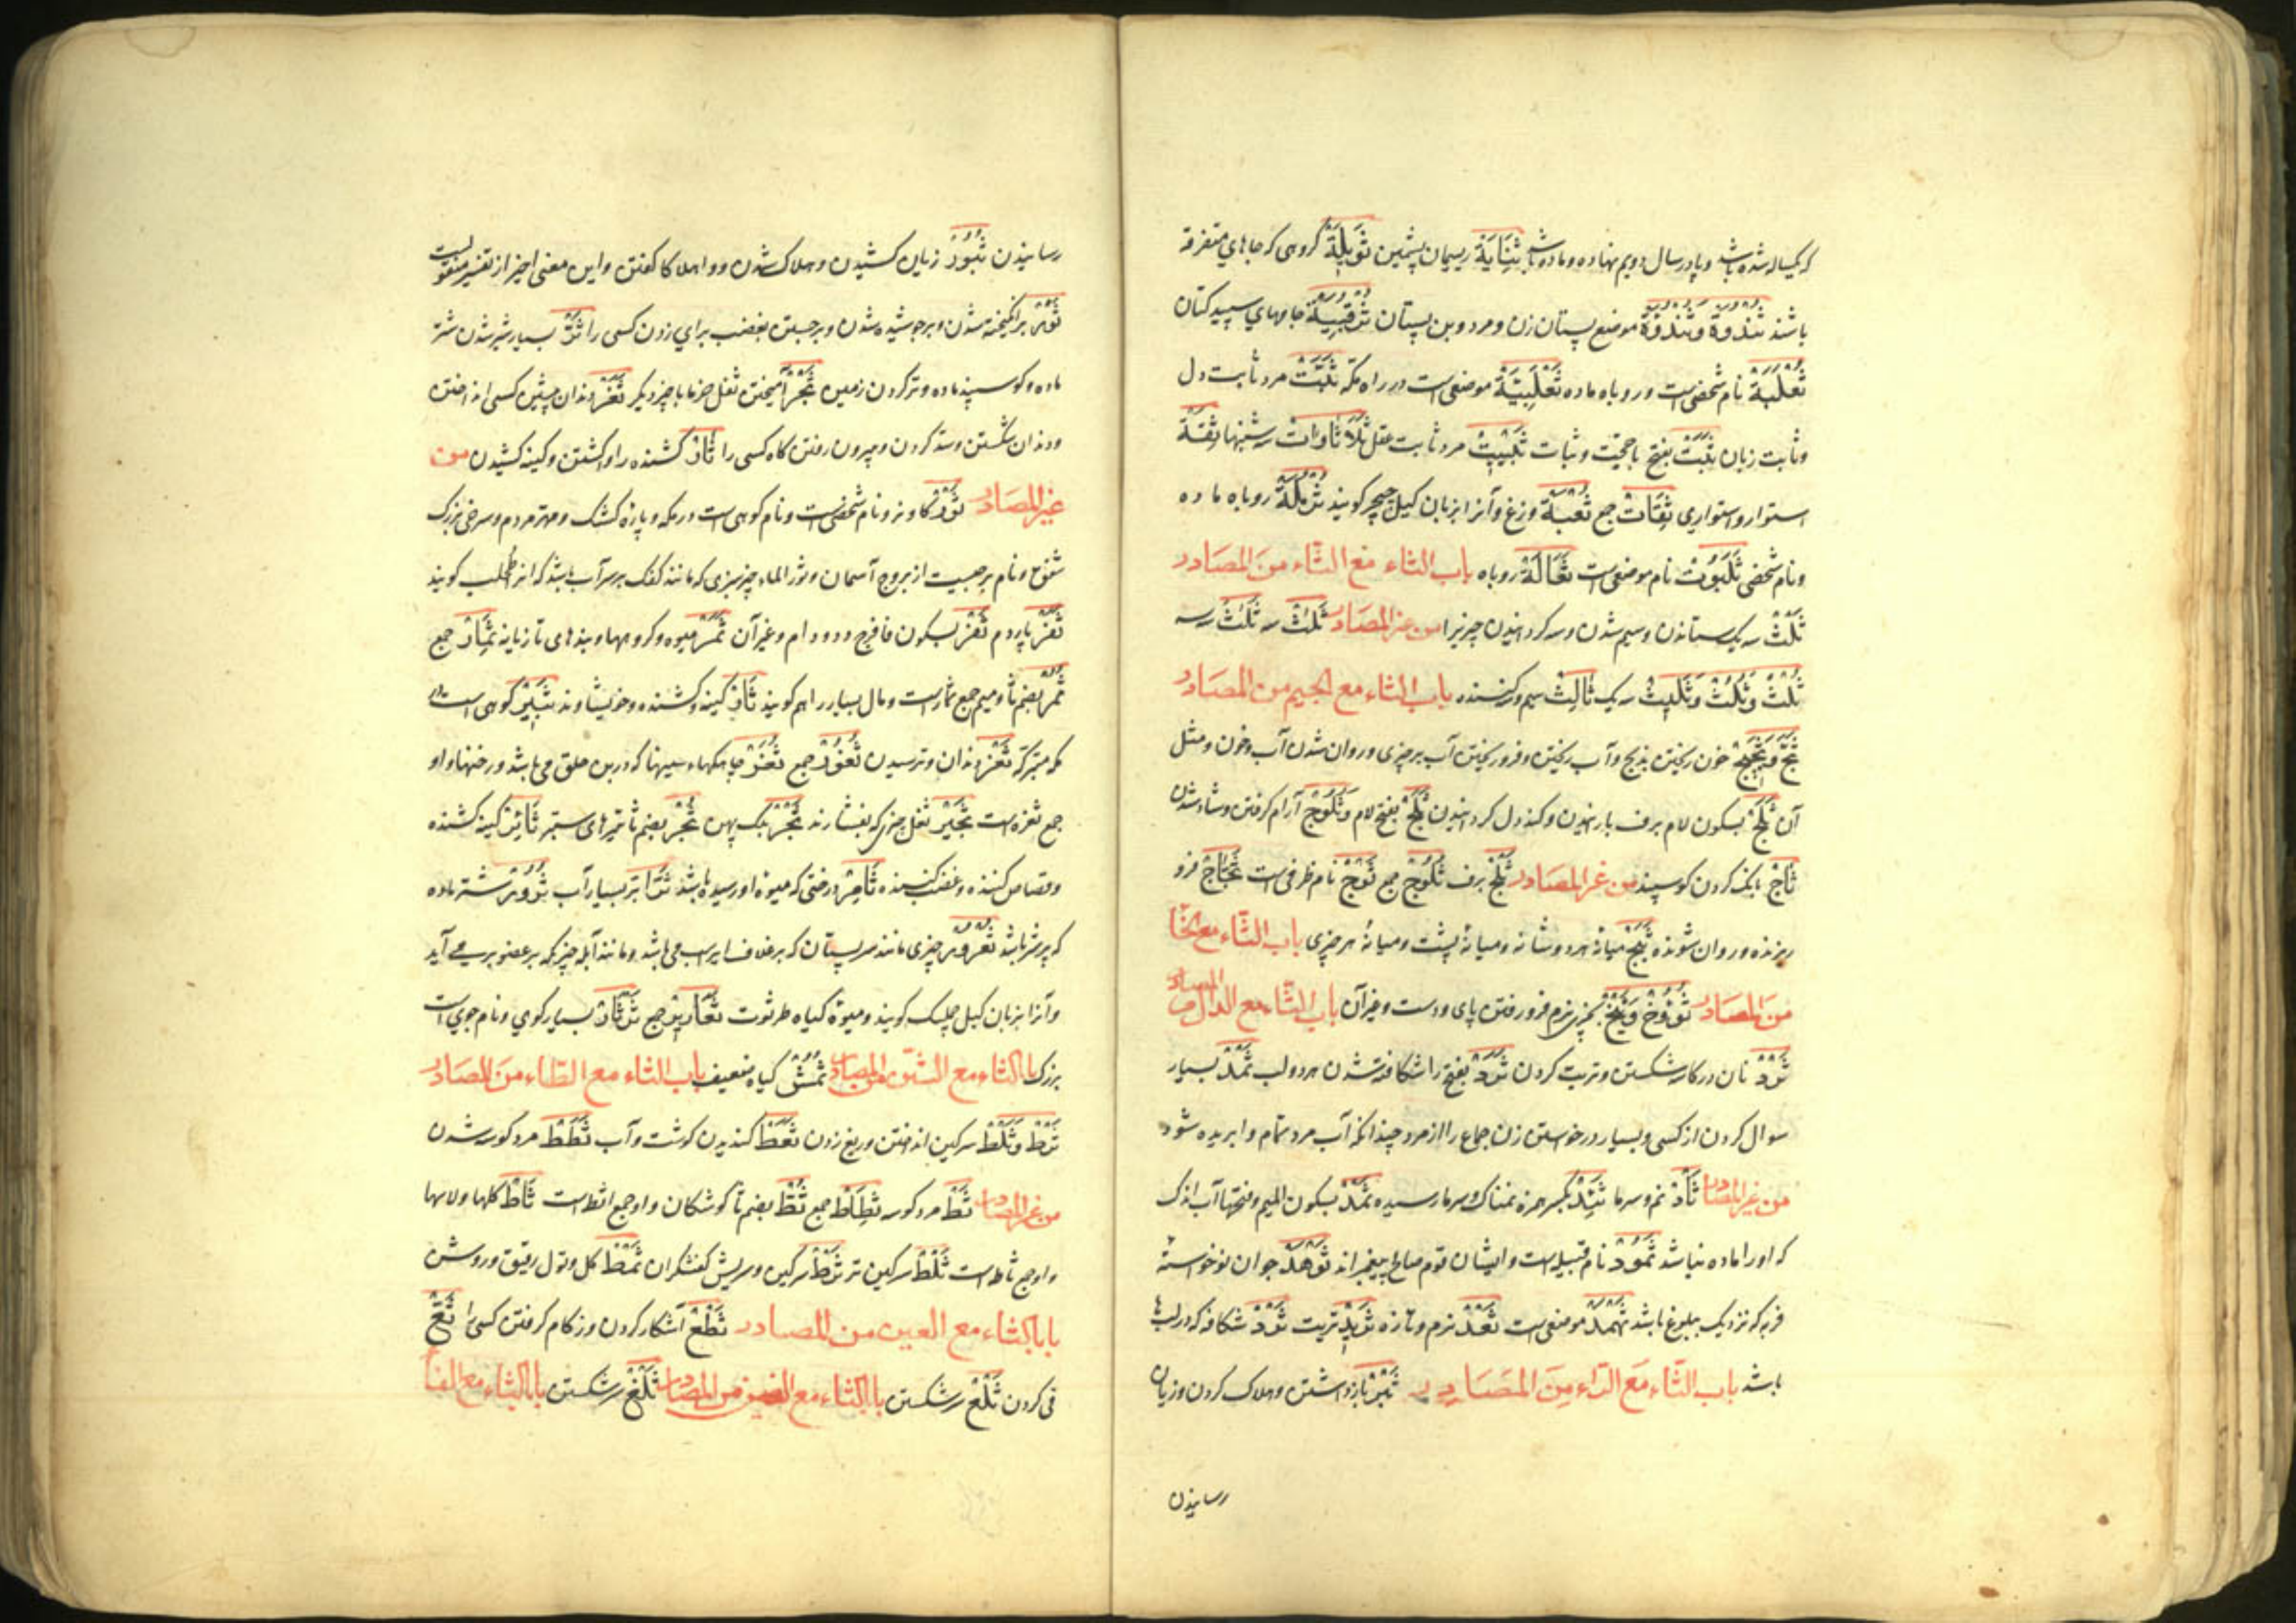 که یکساله شده باشد و پا در سال دویم نهاده و ماده باشد ثِنَایَة ریسمان پشمین ثَوِیلَة گروهی که جاهای متفرقه
باشند ثَنْدُوَة وَثُنْدُؤَة موضع پستان زن و مرد و بن پستان ثُرْقُبِیَّة جامهای سپید کتان
ثَعْلَبَة نام شخصی است و روباه ماده ثَعْلَبِیَّة موضعی است در راه مکّه ثَبْت مرد ثابت دل
و ثابت زبان ثَبَت بفتح با حجّت و ثبات ثَبِیت مرد ثابت عقل ثَلَاثَاوَات سه شنبها ثِقَة
استوار و استواری ثِقَات جمع ثُعْبَة وزغ و آنرا بزبان کیل جیجر کویند ثُرْمُلَة روباه ماده
و نام شخصی ثَلَبُوت نام موضعی است ثُعَالَة روباه باب الثاء مع الثّاء منَ المصَادر
ثَلْث سه یک ستاندن و سیم شدن و سه کردانیدن چیزیرا من غیر المصَادر ثَلَاث سه ثُلَاث سه سه
ثُلْث وَثُلُث وَثَلِیث سه یک ثَالِث سیم و سه کننده باب الثاء مع الجیم من المصَادر
ثَجّ وَثَجِیج خون ریختن بذبح و آب ریختن و فرو ریختن آب بر چیزی و روان شدن آب و خون و مثل
آن ثَلْج بسکون لام برف باریدن و کند دل کردانیدن ثَلَج بفتح لام وَثُلُوج آرام کرفتن و شاد شدن
ثَاج بانک کردن کوسپند من غیر المصَادر ثَلْج برف ثُلُوج جمع ثَوْج نام ظرفی است ثَجَّاج فرو
ریزنده و روان شونده ثَبَج میانهٔ هر دو شانه و میانهٔ پشت و میانهٔ هر چیزی باب الثّاء مع الخَا
منَ المصَادر ثُوُوخ وَثَیْخ بچیزی نرم فرو رفتن پای و دست و غیر آن باب الثّاء مع الدّال من المصادر
ثَرْد نان در کاسه شکستن و تریت کردن ثَرَد بفتح را شکافته شدن هر دو لب ثَمْد بسیار
سوال کردن از کسی و بسیار درخواستن زن جماع را از مرد چندانکه آب مرد تمام وا بریده شود
من غیر المصَادر ثَأَد نم و سرما ثَئِد بکسر همزه نمناک و سرما رسیده ثَمْد بسکون المیم و فتحها آب اندک
که او را ماده نباشد ثَمُود نام قبیله است و ایشان قوم صالح پیغمبراند ثَوْهَد جوان نوخواسته
فربه که نزدیک ببلوغ باشد ثَهْمَد موضعی است ثَعْد نرم و تازه ثَرِید تریت ثَرْد شکافه که در لب
باشد باب الثّاء مَعَ الرّاء مِنَ المصَادِر ثَبْر بازداشتن و هلاک کردن و زیان
رسانیدن
رسانیدن ثُبُور زیان کشیدن و هلاک شدن و وا هلاکا کفتن و این معنی اخیر از تفسیر منقولست
ثَوْر برانکیخته شدن و بر جوشیده شدن و برجستن بغضب برای زدن کسی را ثَرّ بسیار شیر شدن شتر
ماده و کوسپند ماده و تر کردن زمین ثَجْر آمیختن ثفل خرما با چیز دیکر ثَغْر دندان پیشین کسی انداختن
و دندان شکستن و سد کردن و بیرون رفتن کاه کسی را ثَأر کشنده را وا کشتن و کینه کشیدن من
غیر المصَادر ثَوْر کاو نر و نام شخصی است و نام کوهی است در مکه و پاره کشک و مهتر مردم و سرخی بزرک
شفق و نام برجیست از بروج آسمان و ثور الماء چیز سبزی که مانند کفک بر سر آب باشد که انرا طحلب کویند
ثَفَر پاردم ثَفْر بسکون فا فرج دد و دام و غیر آن ثَمَر میوه و کروهها و بندهای تازیانه ثِمَار جمع
ثُمُر بضم ثا و میم جمع ثمار است و مال بسیار را هم کویند ثَأر کینه و کشنده و خویشاوند ثَبِیر کوهی است در
مکه متبرکه ثَغْر دندان و ترسیدن ثُغُور جمع ثُغَر جایکهاء سینها که در بن حلق می باشد و رخنها و او
جمع ثغره است ثَجِیر ثفل چیزی که بفشارند ثَجْر پهن ثُجَر بضم ثا تیرهای ستبر ثَائِر کینه کشنده
و قصاص کننده و غضب کننده ثَامِر درختی که میوه او رسیده باشد ثَرّ ابر بسیار آب ثَرُور شتر ماده
که پر شیر باشد ثُعْرُور چیزی مانند سر پستان که بر غلاف ایر اسب می باشد و مانند آبله چیز که بر عضو بر می آید
و آنرا بزبان کیل چلسک کویند و میوهٔ کیاه طرثوث ثَعَارِیر جمع ثَرْثَار بسیار کوی و نام جوی است
بزرک باب الثاء مع الشین من المصادر ثمش کیاه ضعیف باب الثاء مع الطّاء منَ المصَادر
ثَرْط وَثَلْط سرکین انداختن و ریغ زدن ثَعَط کندیدن کوشت و آب ثَطَط مرد کوسه شدن
من غیر المصَادر ثَطّ مرد کوسه ثِطَاط جمع ثُطّ بضم ثا کوشکان و او جمع اثط است ثَأط کلها و لایها
و او جمع ثاطه است ثَلْط سرکین تر ثَرْط سرکین و سریش کفشکران ثَمْط کل و تول رقیق و روشن
باب الثاء مع العین من المصَادر ثَطْع آشکار کردن و زکام کرفتن کسی را ثَعّ
قی کردن ثَلْع سر شکستن باب الثاء مع الغین من المصَادر ثَلْغ سر شکستن باب الثاء مع الفَا